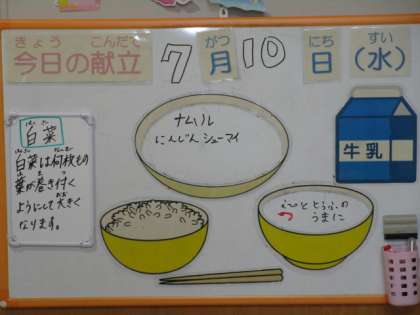 きょう こんだて
今日の献立
7 がつ
月
10 にち
日
すい
(水)
ナムル
にんじんシューマイ
牛乳
とうふの
うまに
はくさい
白菜
白菜は何枚もの
葉が巻き付く
ようにして大きく
なります。